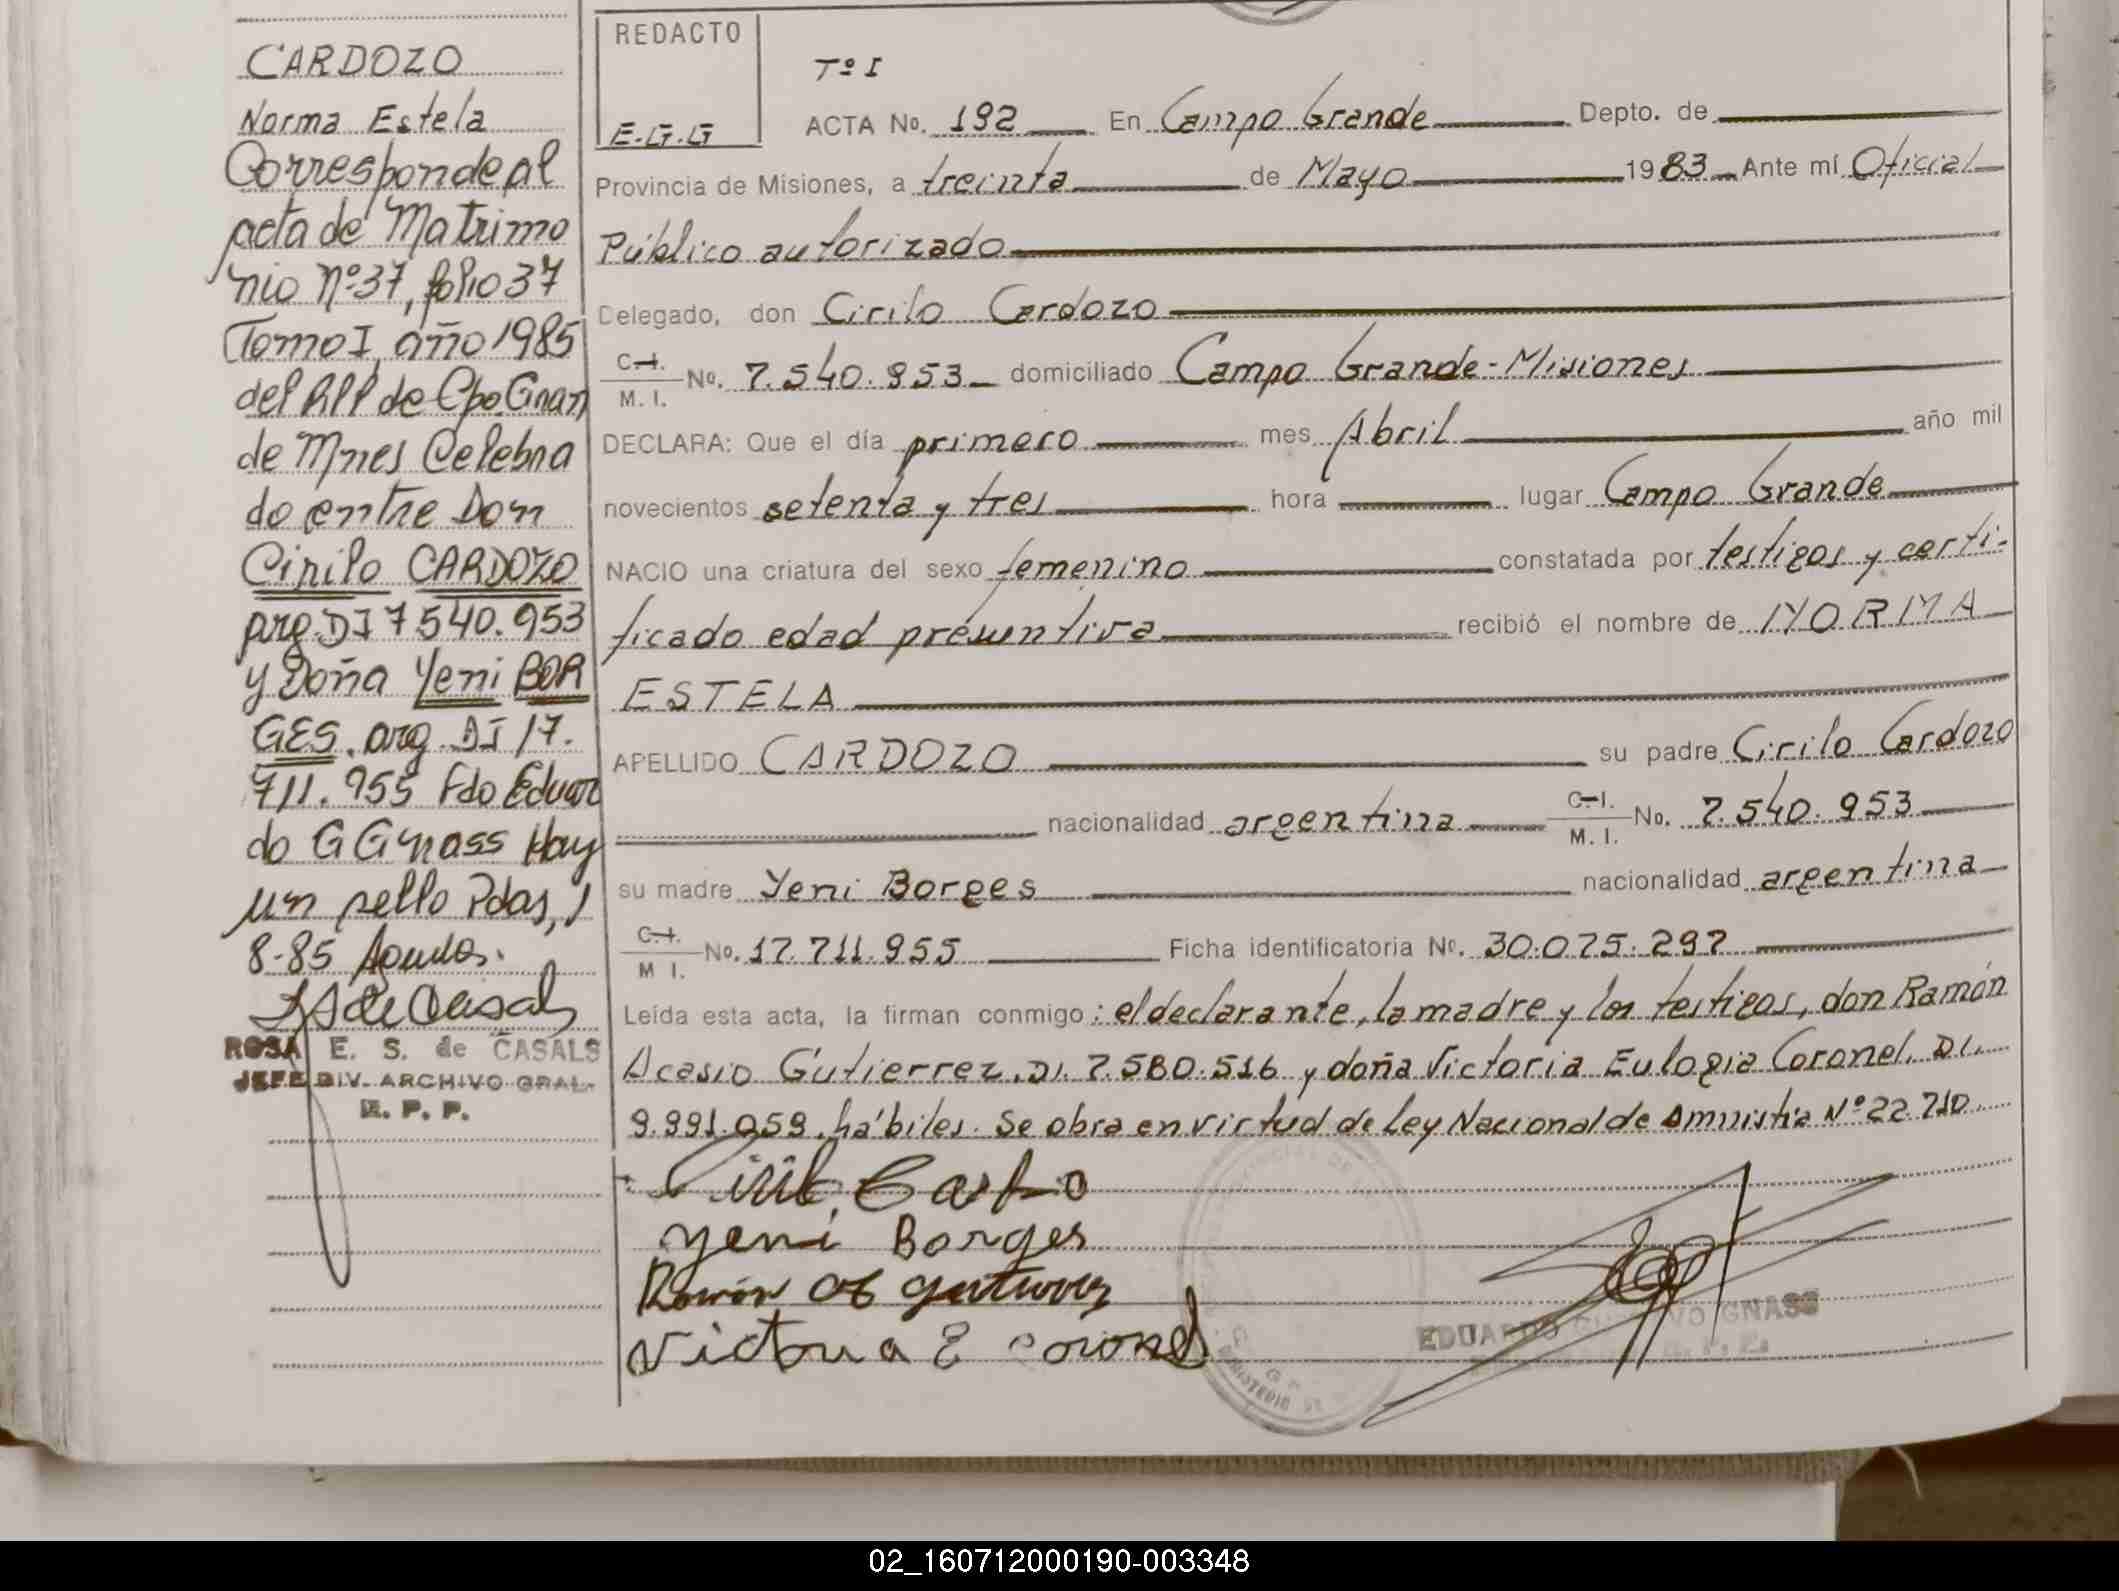 CARDOZO
Norma Estela
Corresponde al
acta de Matrimo
nio Nº 37, folio 37
Tomo I, año 1985
del RPP de Cpo. Gran
de Mnes Celebra
do entre Don
Cirilo CARDOZO
arg. DI 7 540.953
y Doña Yeni BOR
GES. arg. DI 17.
711.955 Fdo Eduar
do G Gnass Hay
un sello Pdas, 1
8-85
ROSA E. S. de CASALS
JEFE DIV. ARCHIVO GRAL.
R. P. P.
REDACTO
E.G.G
Tº I
ACTA No. 192 En Campo Grande Depto. de
Provincia de Misiones, a treinta de Mayo 1983 Ante mí Oficial
Público autorizado
Delegado, don Cirilo Cardozo
C.I.
M. I. No. 7.540.953 domiciliado Campo Grande-Misiones
DECLARA: Que el día primero mes Abril año mil
novecientos setenta y tres hora lugar Campo Grande
NACIO una criatura del sexo femenino constatada por testigos y certi-
ficado edad presuntiva recibió el nombre de NORMA
ESTELA
APELLIDO CARDOZO su padre Cirilo Cardozo
nacionalidad argentina C.I. M. I. No. 7.540.953
su madre Yeni Borges nacionalidad argentina
C.I. M I. No. 17.711.955 Ficha identificatoria Nº. 30.075.297
Leída esta acta, la firman conmigo: el declarante, la madre y los testigos, don Ramón
Acasio Gutierrez, DI. 7.580.516 y doña Victoria Eulogia Coronel, DI.
9.991.059, hábiles. Se obra en virtud de Ley Nacional de Amnistía Nº 22.710
Yeni Borges
Victoria E Coronel
EDUARDO GUSTAVO GNASS
02_160712000190-003348